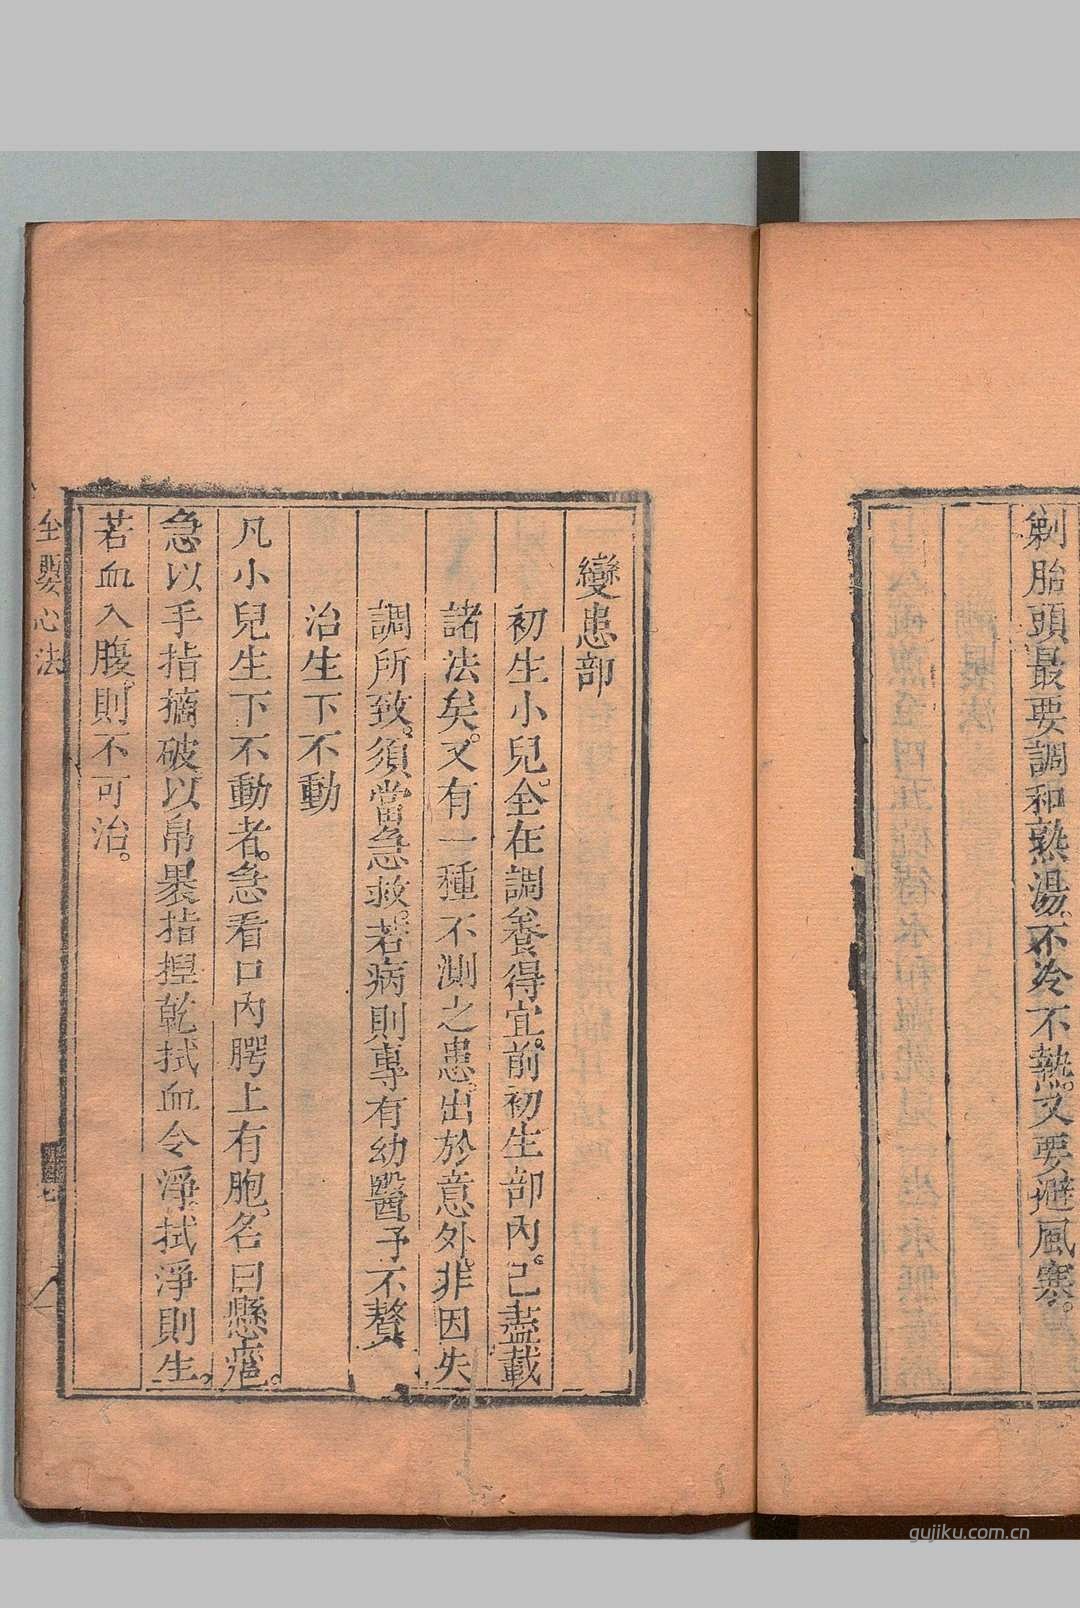 剃胎頭最要調和熟湯不冷不熱又要避風寒。
變患部
初生小兒。全在調養得宜。前初生部內。已盡載
諸法矣。又有一種不測之患。出於意外。非因失
調所致。須當急救。若病則專有幼醫。予不贅
治生下不動
凡小兒生下不動者。急看口內腭上有胞。名曰懸癰。
急以手指摘破以帛裹指揑乾拭血令淨。拭淨則生。
若血入腹。則不可治。
全嬰心法
gujiku.com.cn